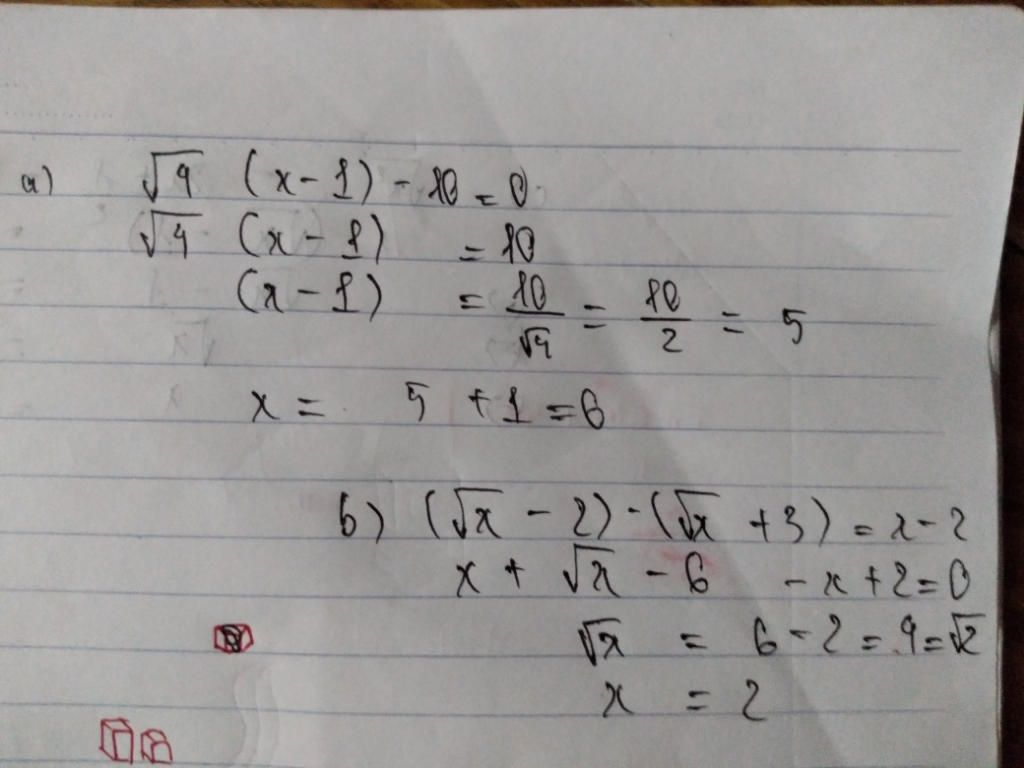 a) √4 (x - 1) - 10 = 0
√4 (x - 1) = 10
(x - 1) = 10/√4 = 10/2 = 5
x = 5 + 1 = 6
b) (√x - 2) · (√x + 3) = x - 2
x + √x - 6 - x + 2 = 0
√x = 6 - 2 = 4 = √2
x = 2